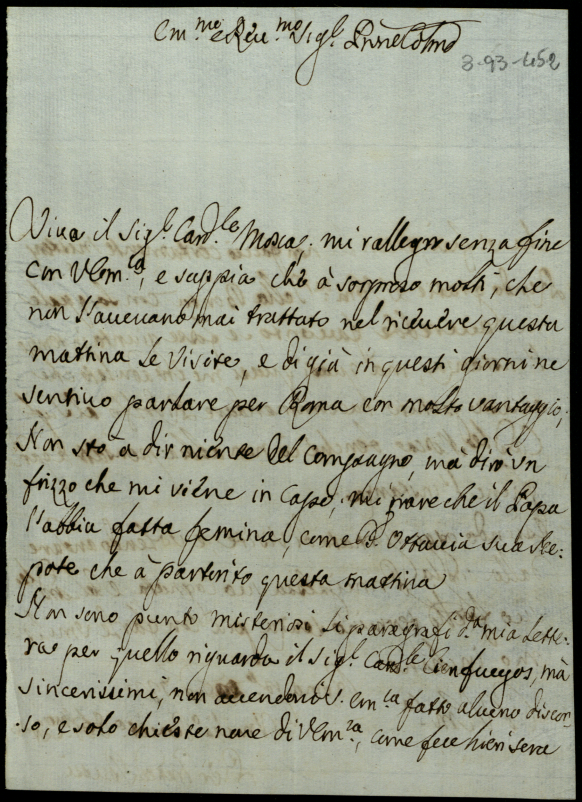 Em.mo e Rev.mo Sig.r Pnne Colmo
8-93-452
Viva il Sig.r Card.le Mosca, mi rallegro senza fine
con VEm.za, e sappia che à sorpreso molti, che
non l'avevano mai trattato nel ricevere questa
mattina le visite, e di già in questi giorni ne
sentivo parlare per Roma con molto vantaggio;
Non stò à dir niente del Compagno, mà dirò un
frizzo che mi viene in Capo, mi pare che il Papa
l'abbia fatta femina, come D. Ottavia sua Ne-
pote che à partorito questa mattina
Non sono punto misteriosi li paragrafi d.a mia lette-
ra per quello riguarda il Sig.r Card.le Cienfuegos, mà
sincerissimi, non avendomi S. Em.za fatto alcuno discor-
so, e solo chieste nove di VEm.za, come fece hieri sera